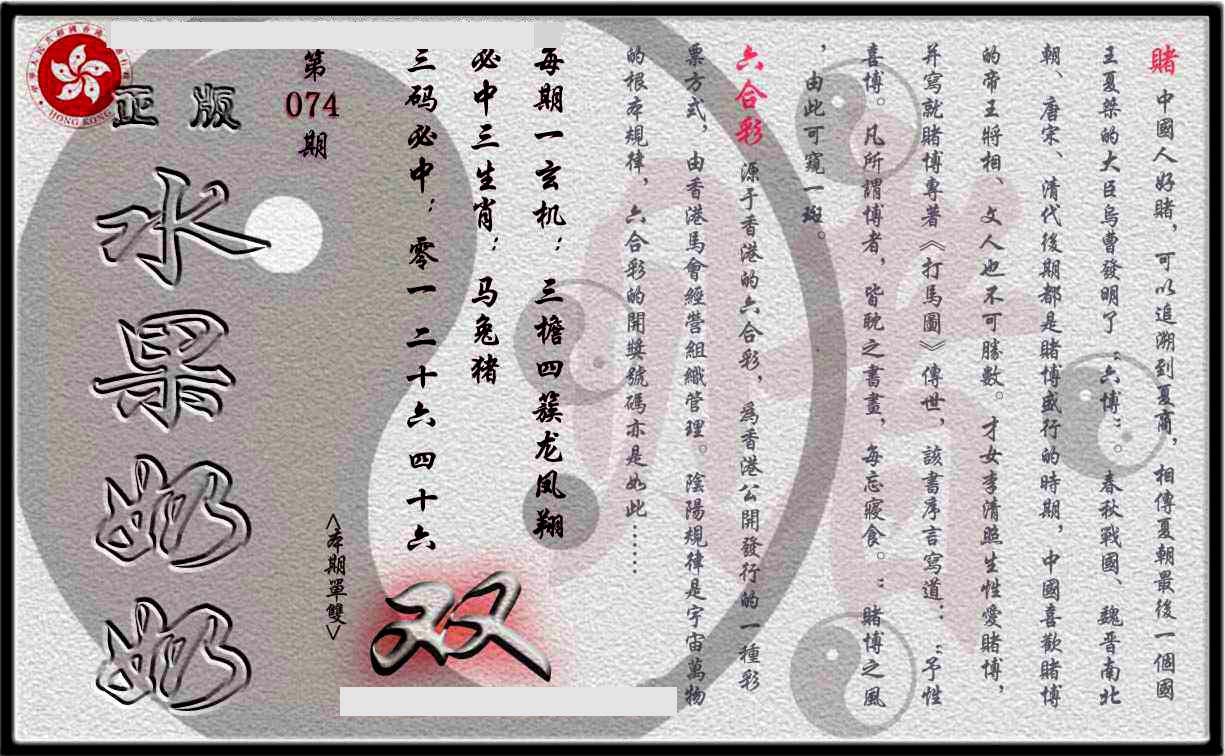 賭 中國人好賭，可以追溯到夏商，相傳夏朝最後一個國
王夏桀的大臣烏曹發明了“六博”春秋戰國、魏晋南北
朝、唐宋、清代後期都是賭博盛行的時期，中國喜歡賭博
的帝王將相、文人也不可勝數。才女李清照生性愛賭博，
并寫就賭博專著《打馬圖》傳世，該書序言寫道：“予性
喜博。凡所謂博者，皆耽之書畫，每忘寢食。”賭博之風
，由此可窺一斑。
六合彩 源于香港的六合彩，為香港公開發行的一種彩
票方式，由香港馬會經營組織管理。陰陽規律是宇宙萬物
的根本規律，六合彩的開獎號碼亦是如此……
每期一玄机：三檐四簇龙凤翔
必中三生肖：马兔猪
三码必中：零一 二十六 四十六
双
<本期單雙>
第
074
期
正版
水果奶奶
HONG KONG